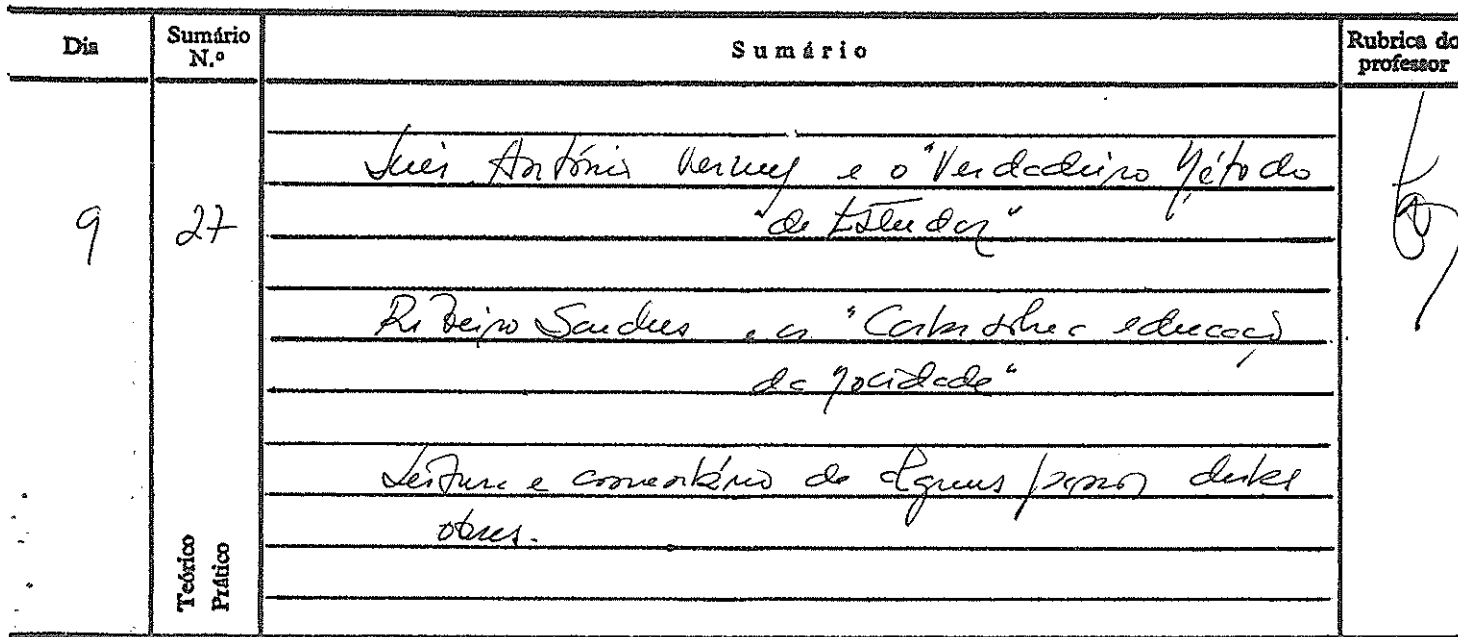 Dia
Sumário
N.º
Sumário
Rubrica do
professor
9
27
Luis António Verney e o "Verdadeiro Método
"de Estudar"
Ribeiro Sanches e as "Cartas sobre a educação
da mocidade"
Leitura e comentário de alguns passos destas
obras.
Teórico
Prático